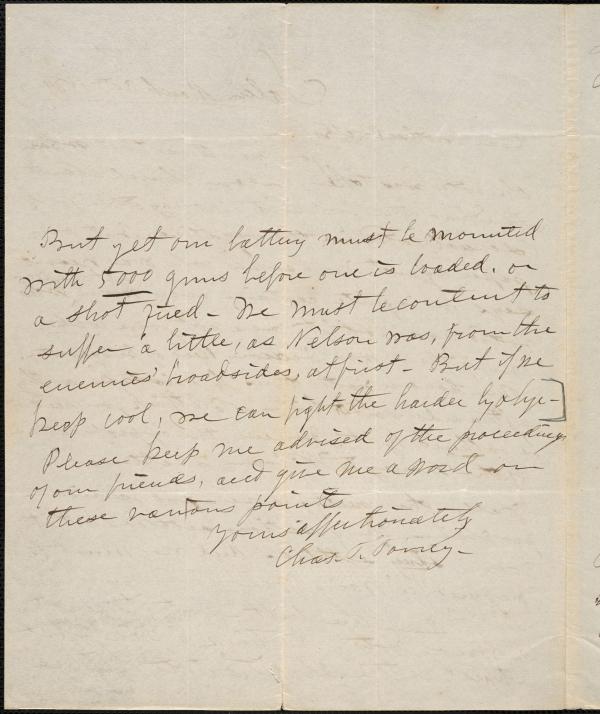 But yet our battery must be mounted
with 5000 guns before one is loaded, or
a shot fired - We must be content to
suffer a little, as Nelson was, from the
enemies' broadsides, at first - But if we
keep cool, we can fight the harder by & bye -]
Please keep me advised of the proceedings
of our friends, and give me a word on
these various points
Yours affectionately
Chas. T. Torrey -